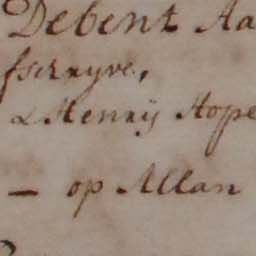 Debent Aa
fschryve,
& Henrij Hope
— op Allan